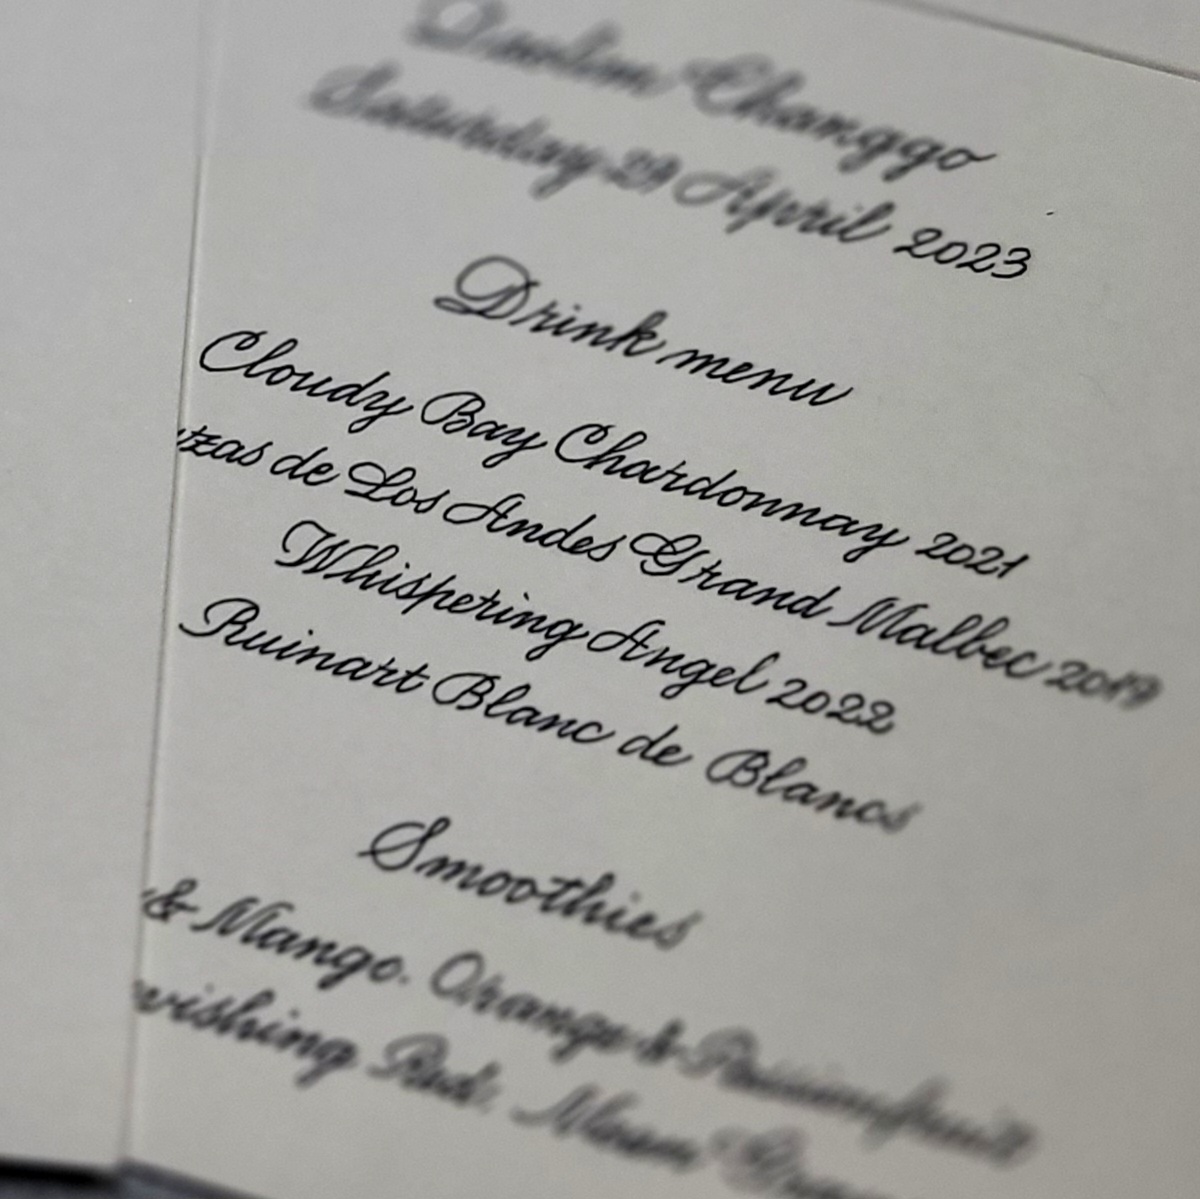 Changgo
Saturday 29 April 2023
Drink menu
Cloudy Bay Chardonnay 2021
zas de Los Andes Grand Malbec 2019
Whispering Angel 2022
Ruinart Blanc de Blancs
Smoothies
& Mango. Orange & Passionfruit
vishing Red.